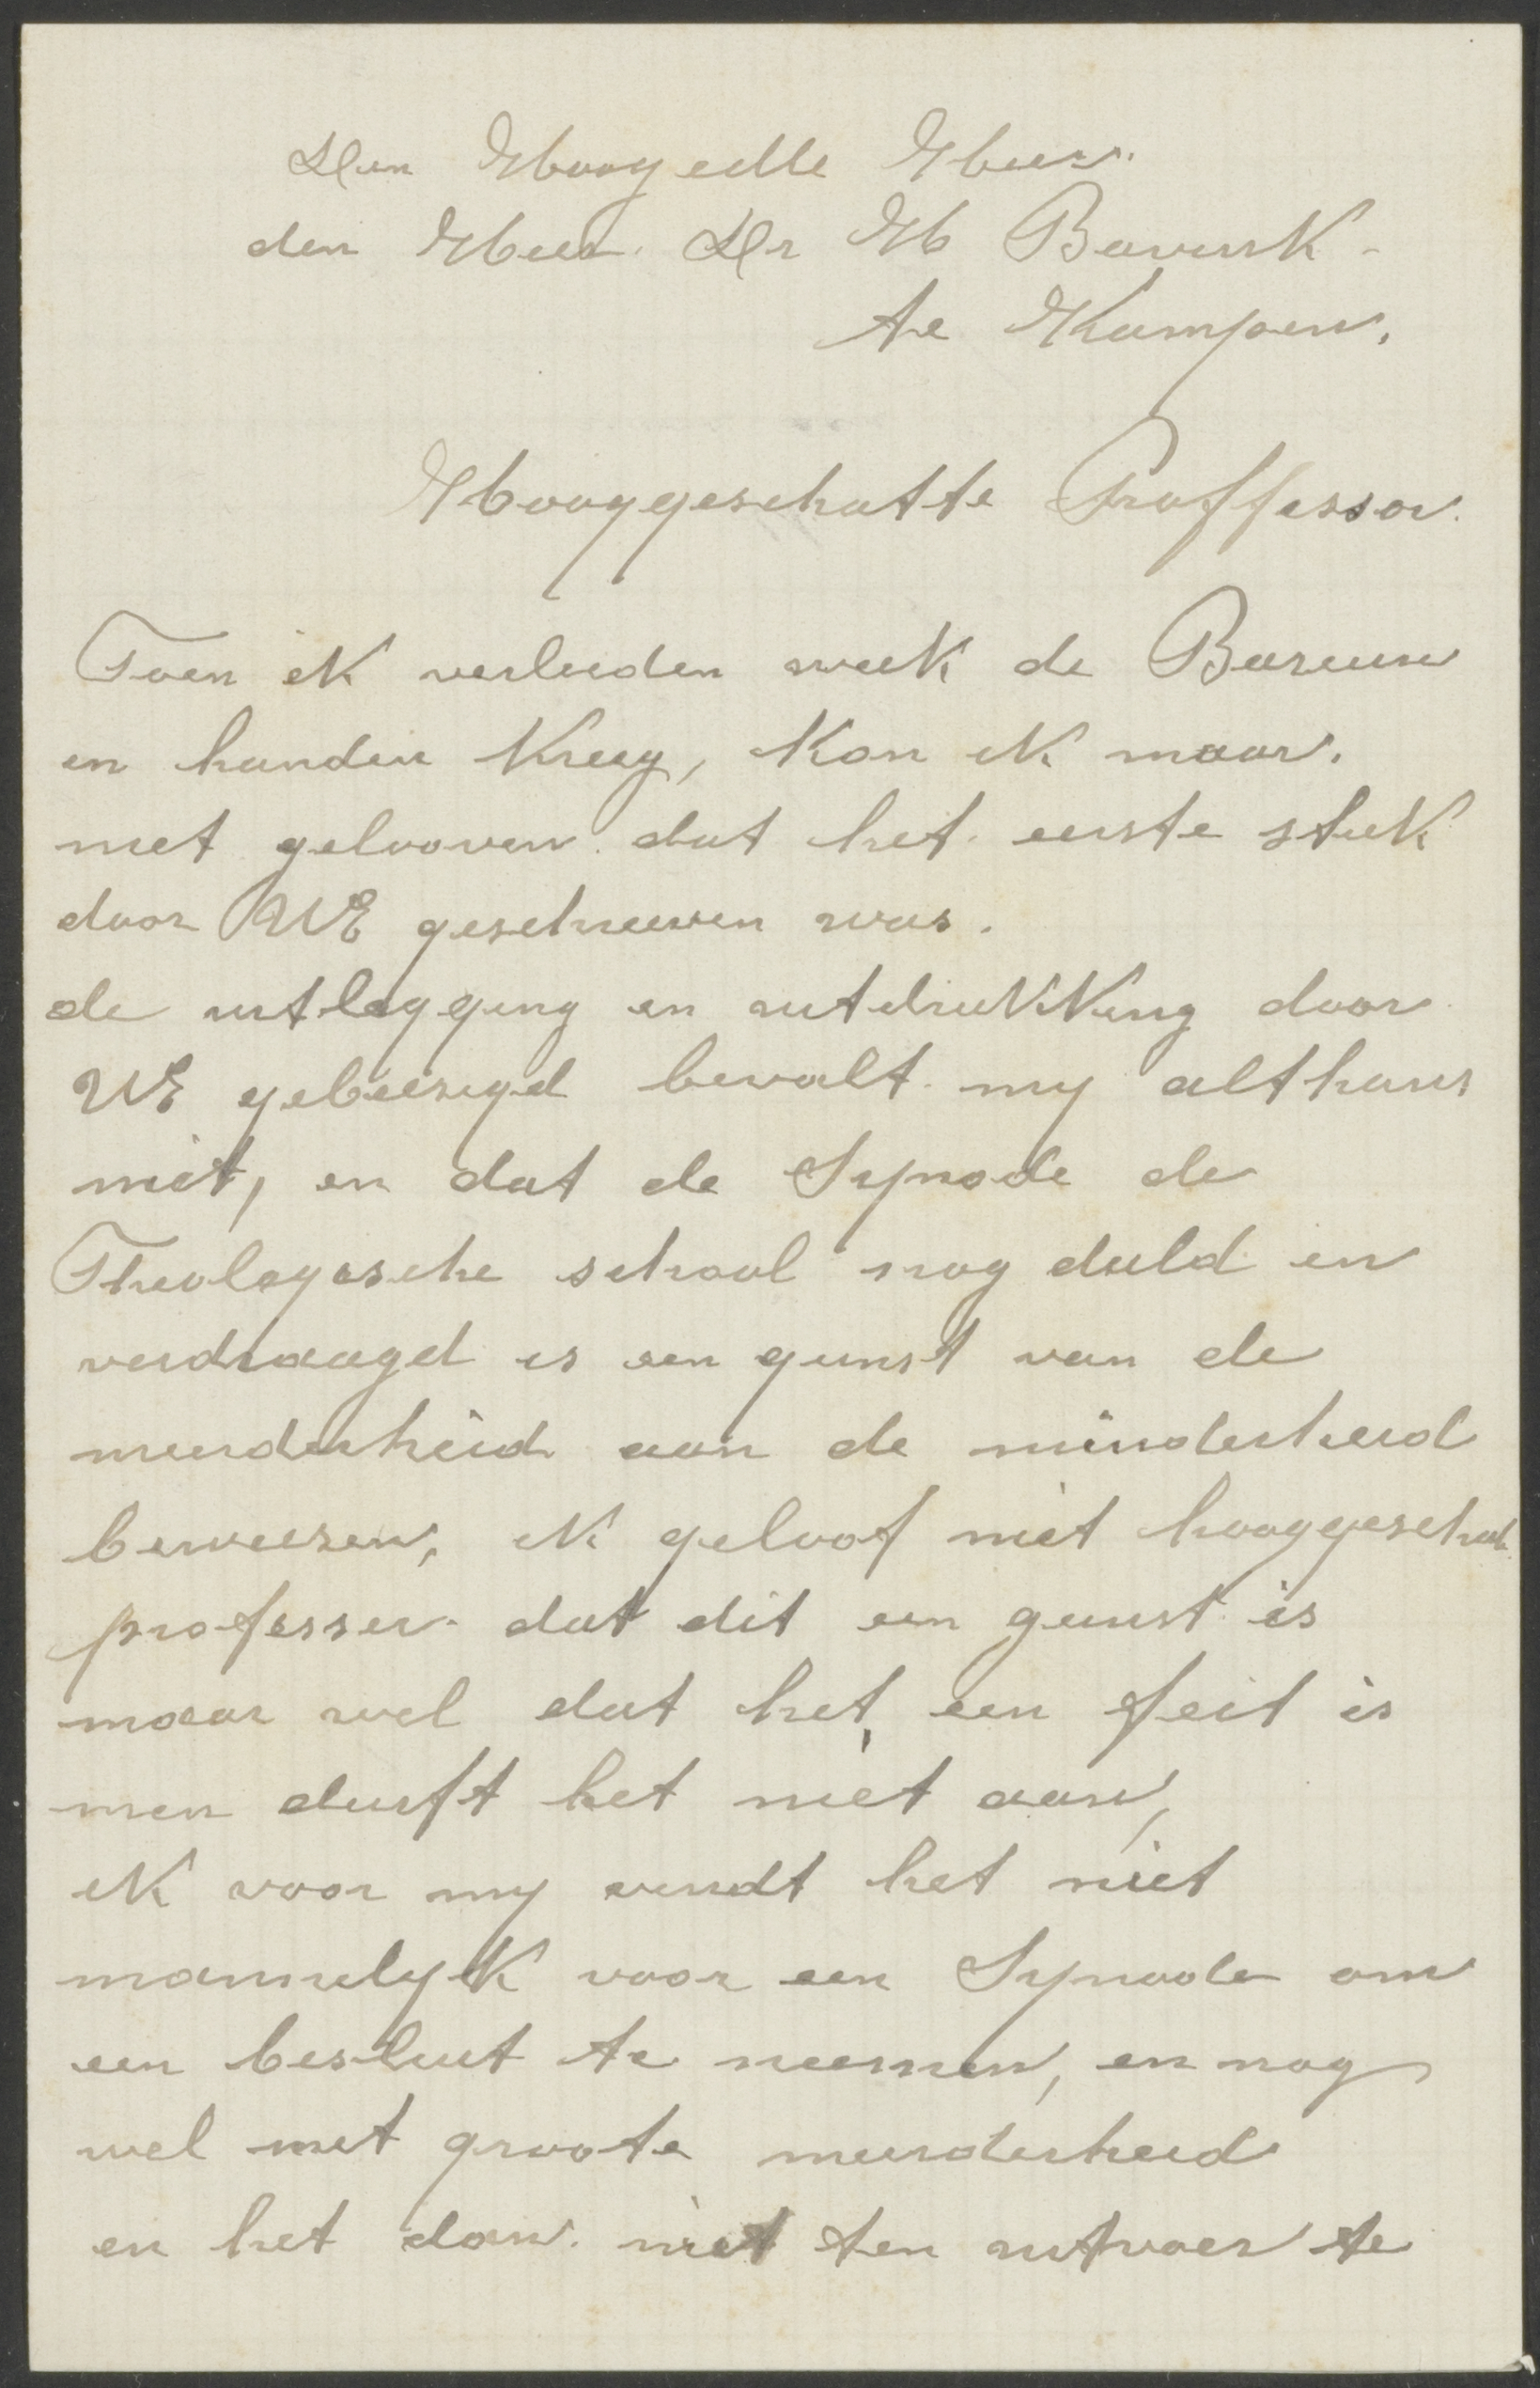 Den Hoog edele Heer.
den Heer. Dr H Bavink -
te Kampen.
Hooggeschatte Proffessor.
Toen ik verleeden week de Bazuin
in handen kreeg, kon ik maar.
niet gelooven. dat het. eerste stuk
door UE geschreeven was.
de uitlegging en uitdrukking door
UE gebeezigd bevalt. my althans
niet, en dat de Synode de
Theologische school nog duld en
verdraagd is een gunst van de
meerderheid aan de minderheid
beweezen, ik geloof niet hooggeschat
professer. dat dit een gunst is
maar wel dat het, een feit is
men durft het niet aan,
ik voor my vindt het niet
mannelyk voor een Synode om
een besluit te neemen, en nog
wel met groote meerderheid
en het dan. niet ten uitvoer te